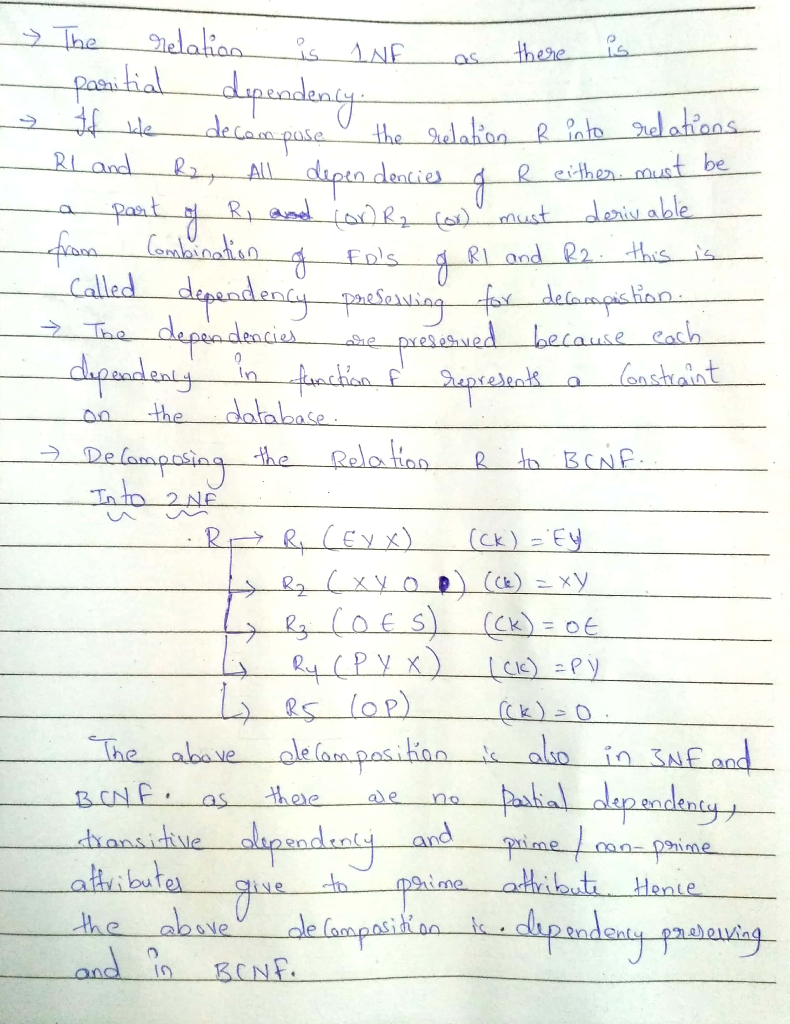 → The relation is 1NF as there is
paritial dependency.
→ If We decompose the relation R into relations
R1 and R2, All dependencies of R either must be
a part of R1 and (or) R2 (or) must derivable
from Combination of FD's of R1 and R2. this is
Called dependency preserving for decompistion.
→ The dependencies are preserved because each
dependency in function F represents a Constraint
on the database.
→ Decomposing the Relation R to BCNF.
Into 2NF
R → R1 (EYX) (CK) = EY
→ R2 (XYO) (CK) = XY
→ R3 (OES) (CK) = OE
→ R4 (PYX) (CK) = PY
→ R5 (OP) (CK) = O.
The above decomposition is also in 3NF and
BCNF. as there are no Partial dependency,
transitive dependency and prime / non-prime
attributes give to prime attribute. Hence
the above decomposition is. dependency preserving
and in BCNF.